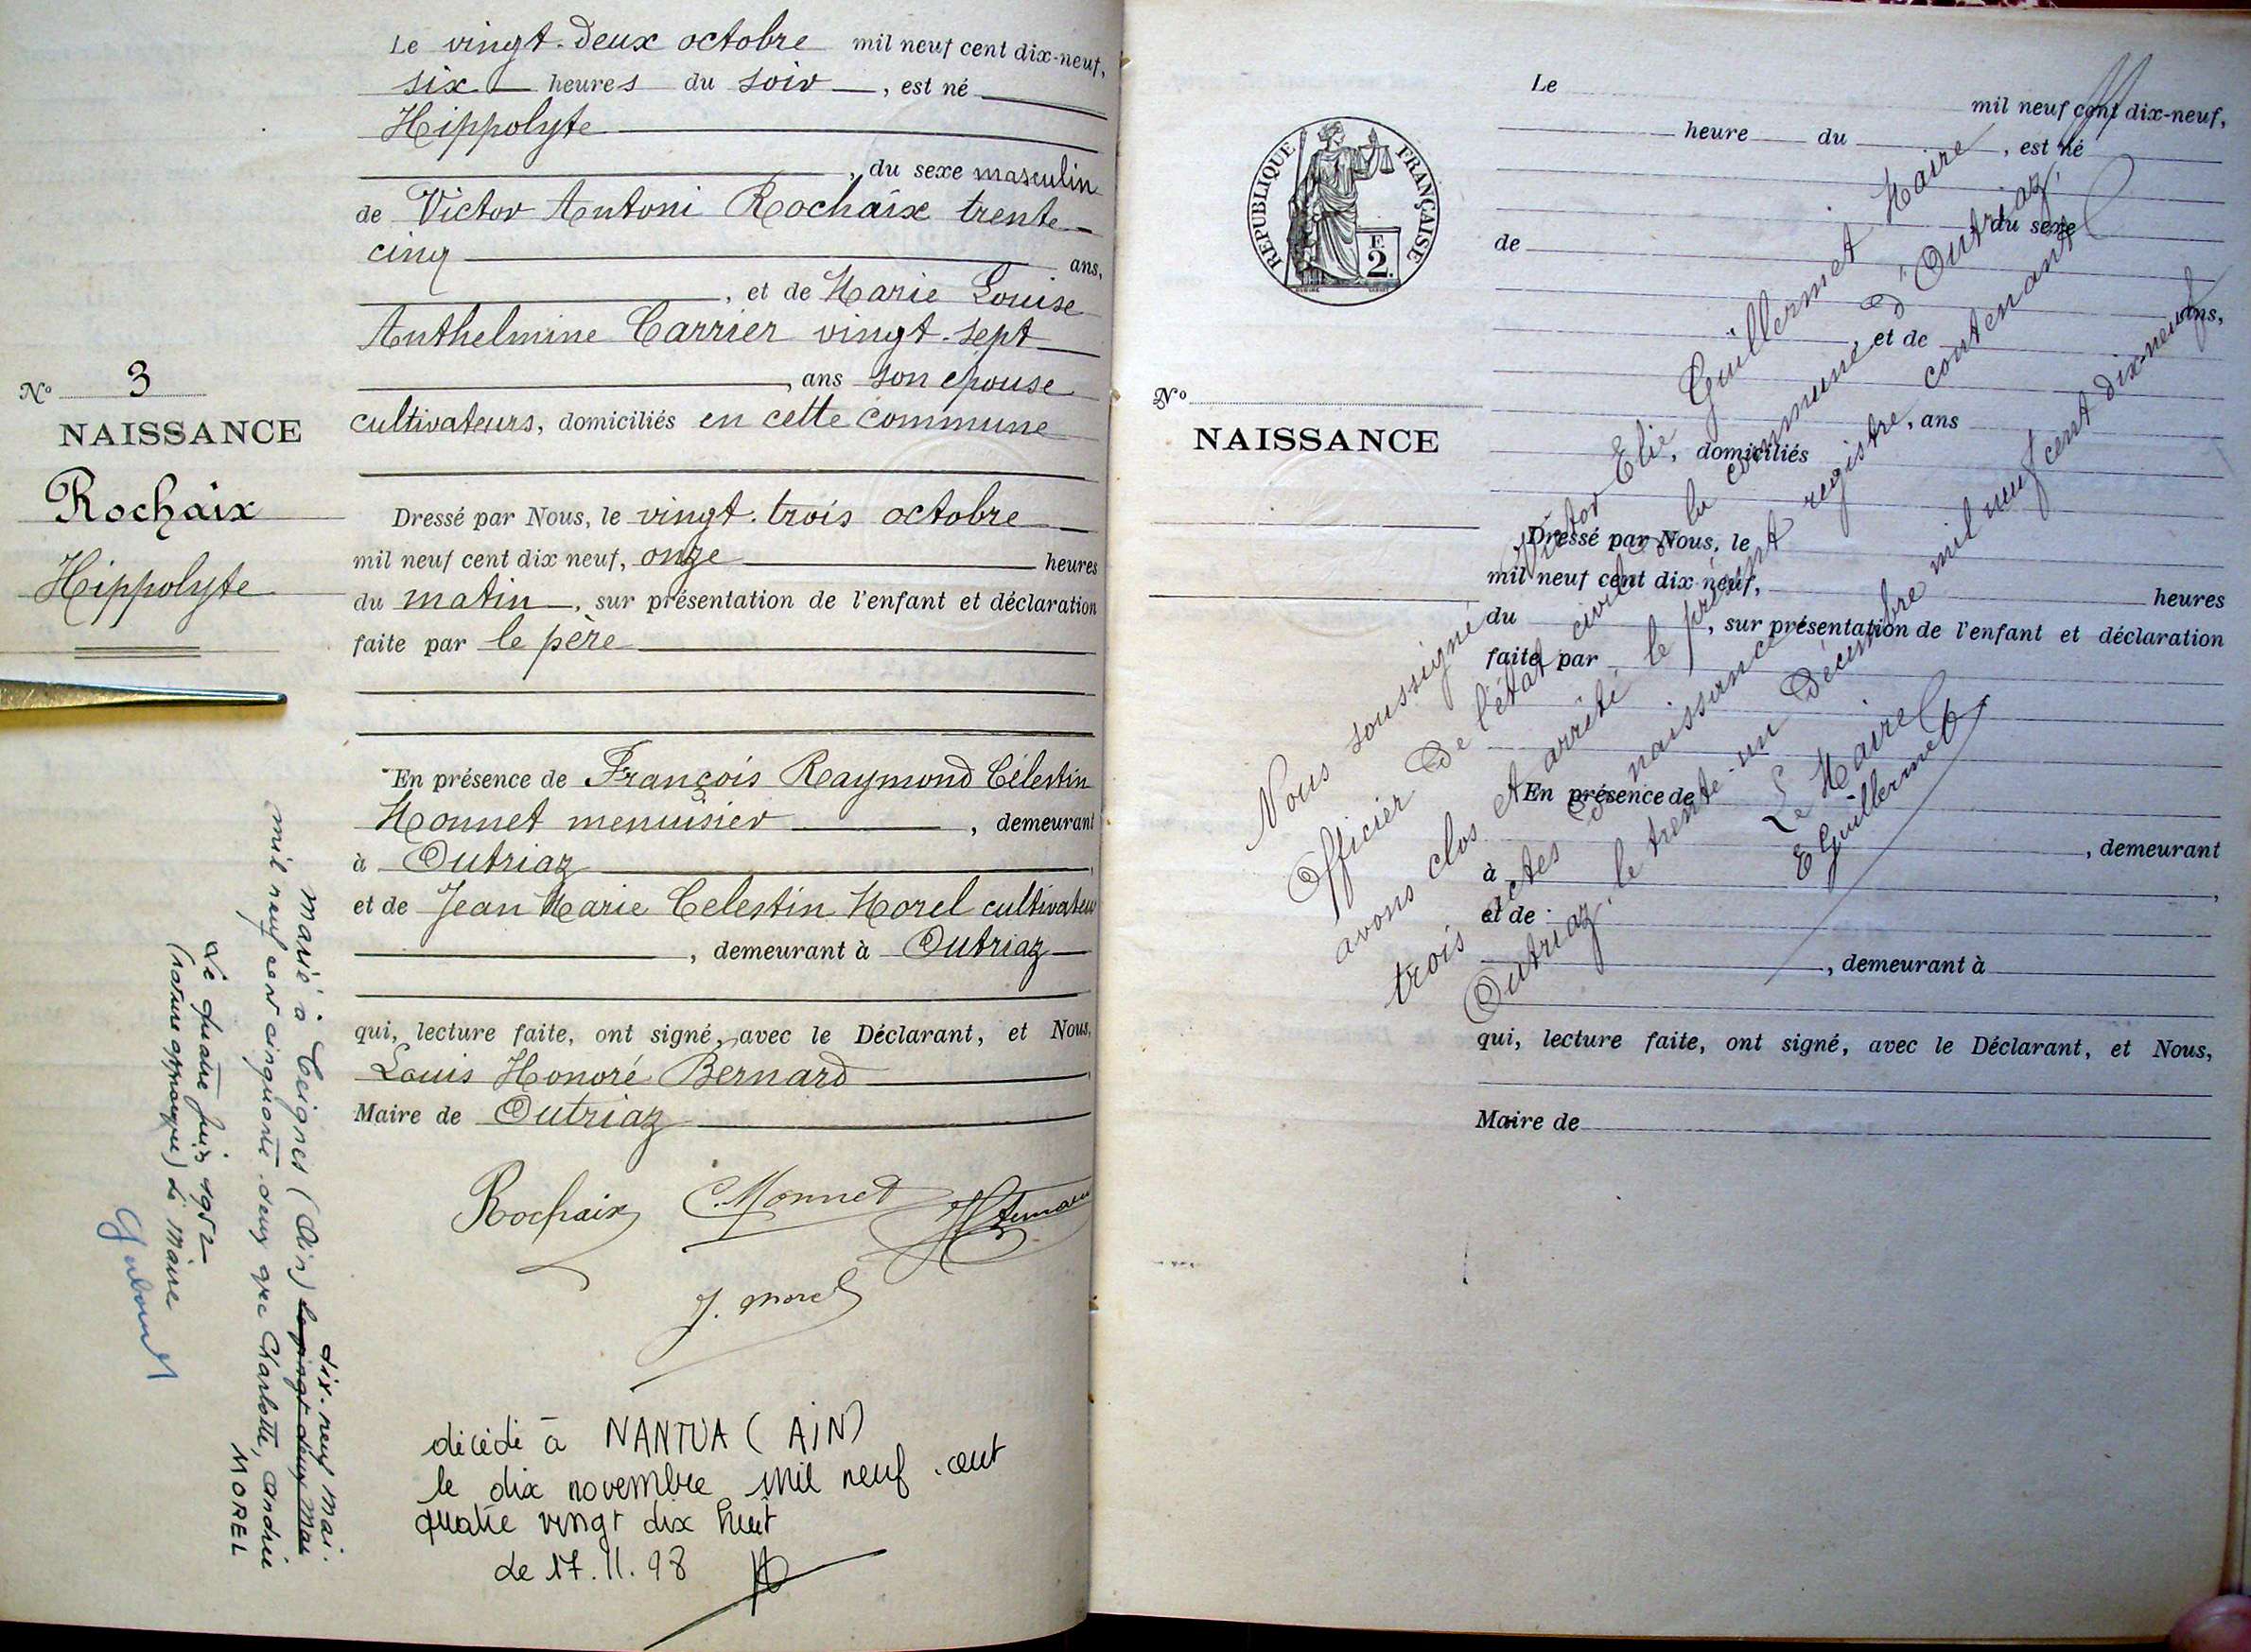 Le vingt-deux octobre mil neuf cent dix-neuf,
six heures du soir, est né
Hippolyte
, du sexe masculin
de Victor Antoni Rochaix trente-
cinq ans,
, et de Marie Louise
Anthelmine Carrier vingt-sept
, ans son épouse
cultivateurs, domiciliés en cette commune
N° 3
NAISSANCE
Rochaix
Hippolyte
Dressé par Nous, le vingt-trois octobre
mil neuf cent dix neuf, onze heures
du matin, sur présentation de l'enfant et déclaration
faite par le père
En présence de François Raymond Célestin
Monnet menuisier, demeurant
à Outriaz
et de Jean Marie Celestin Morel cultivateur
, demeurant à Outriaz
qui, lecture faite, ont signé, avec le Déclarant, et Nous,
Louis Honoré Bernard
Maire de Outriaz
Rochaix C. Monnet
J. Morel
marié à Ceignes (Ain) le vingt deux Mai dix-neuf mai
mil neuf cent cinquante-deux avec Charlotte, Andrée
MOREL
Le quatre juin 1952
Le Maire
décédé à NANTUA (AIN)
le dix novembre mil neuf cent
quatre vingt dix huit
Le 17.11.98
Le mil neuf cent dix-neuf,
heure du , est né
du sexe
de
ans,
, et de
, ans
, domiciliés
RÉPUBLIQUE FRANÇAISE
E
2.
N°
NAISSANCE
Dressé par Nous, le
mil neuf cent dix-neuf, heures
du , sur présentation de l'enfant et déclaration
faite par
En présence de
, demeurant
à ,
et de
, demeurant à
qui, lecture faite, ont signé, avec le Déclarant, et Nous,
Maire de
Nous soussigné Victor Elie Guillermet Maire
Officier de l'état civil de la commune d'Outriaz,
avons clos et arrêté le présent registre, contenant
trois actes de naissance
Outriaz, le trente-un Décembre mil neuf cent dix-neuf
Le Maire
E Guillermet